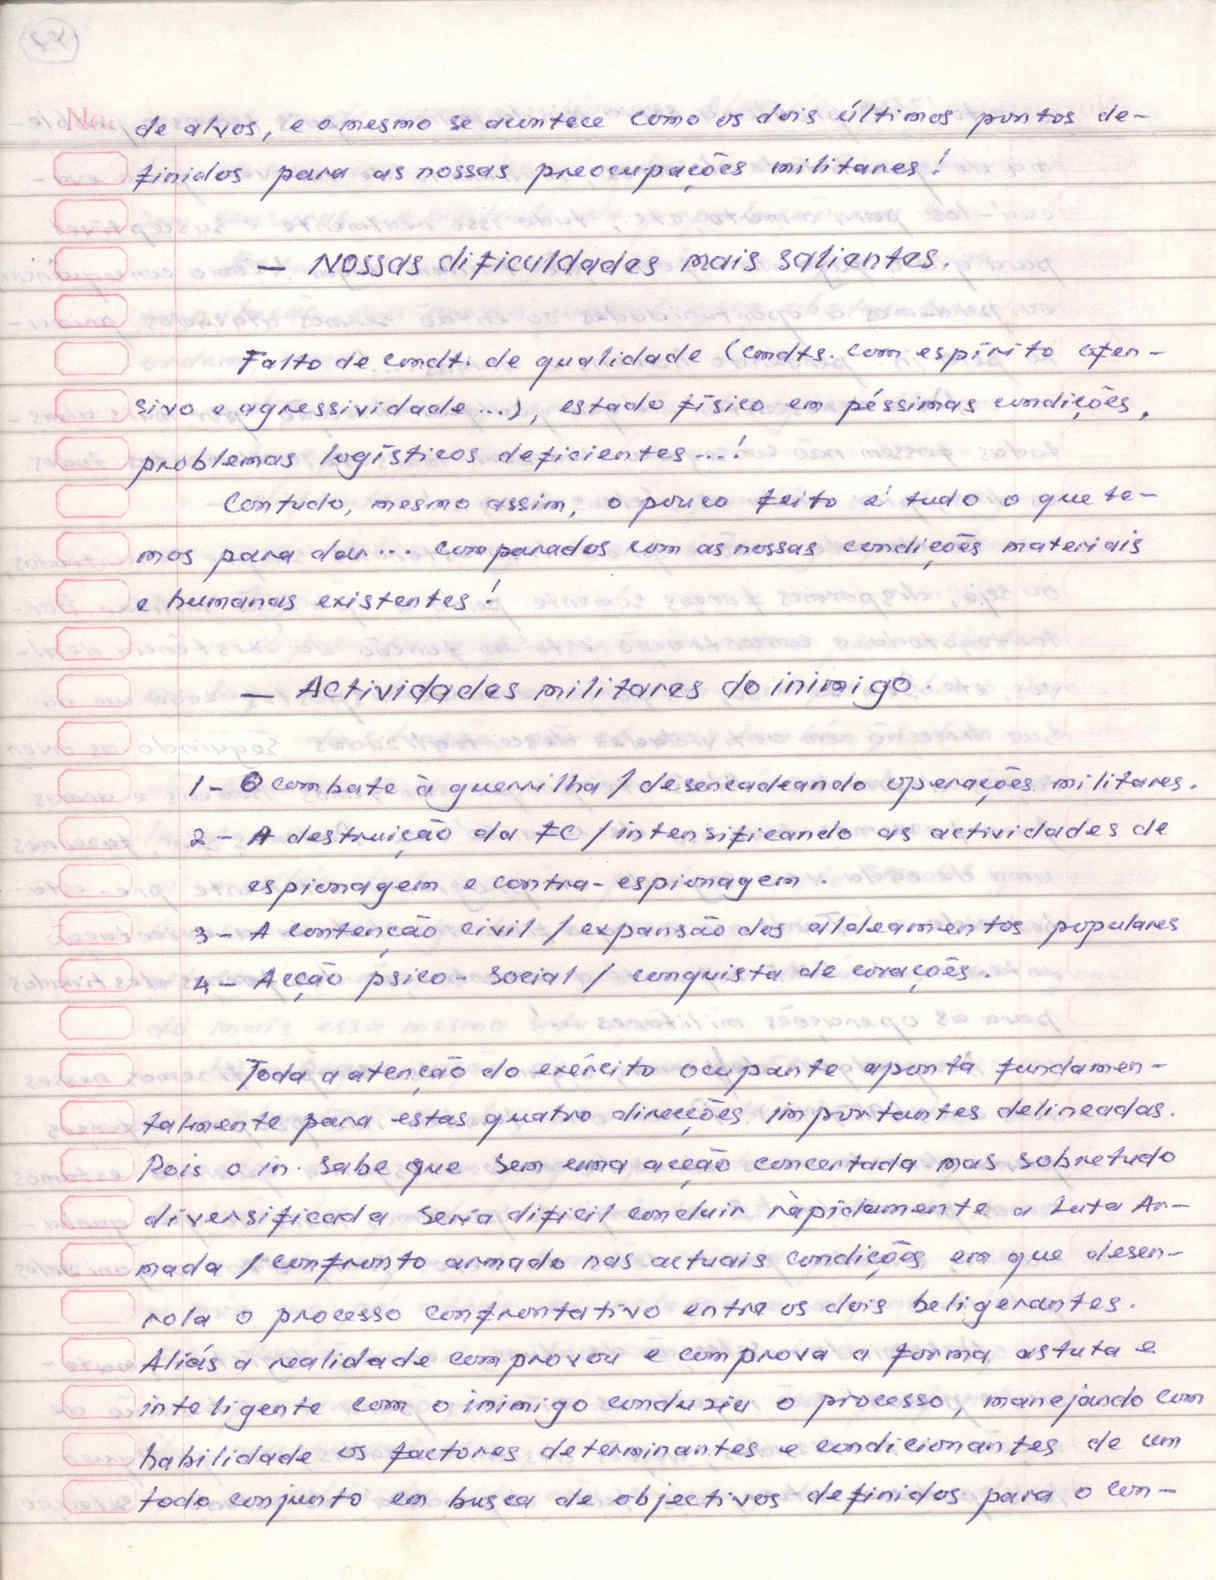 de alvos, e o mesmo se acontece como os dois últimos pontos de-
finidos para as nossas preocupações militares!
— Nossas dificuldades mais salientes.
Falto de condt. de qualidade (comdts. com espírito ofen-
sivo e agressividade...), estado físico em péssimas condições,
problemas logísticos deficientes...!
Contudo, mesmo assim, o pouco feito é tudo o que te-
mos para dar... comparados com as nossas condições materiais
e humanas existentes!
— Actividades militares do inimigo.
1- O combate à guerrilha / desencadeando operações militares.
2- A destruição da FC / intensificando as actividades de
espionagem e contra-espionagem.
3- A contenção civil / expansão dos aldeamentos populares
4- Acção psico-social / conquista de corações.
Toda a atenção do exército ocupante aponta fundamen-
talmente para estas quatro direcções importantes delineadas.
Pois o in. sabe que sem uma acção concertada mas sobretudo
diversificada seria difícil concluir ràpidamente a Luta Ar-
mada / confronto armado nas actuais condições em que desen-
rola o processo confrontativo entre os dois beligerantes.
Aliás a realidade comprovou e comprova a forma astuta e
inteligente com o inimigo conduziu o processo, manejando com
habilidade os factores determinantes e condicionantes de um
todo conjunto em busca de objectivos definidos para o con-